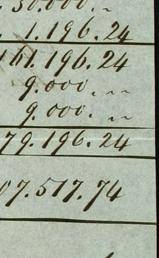 30.000. "
1.196.24
161.196.24
9.000. "
9.000. "
79.196.24
07.517.74